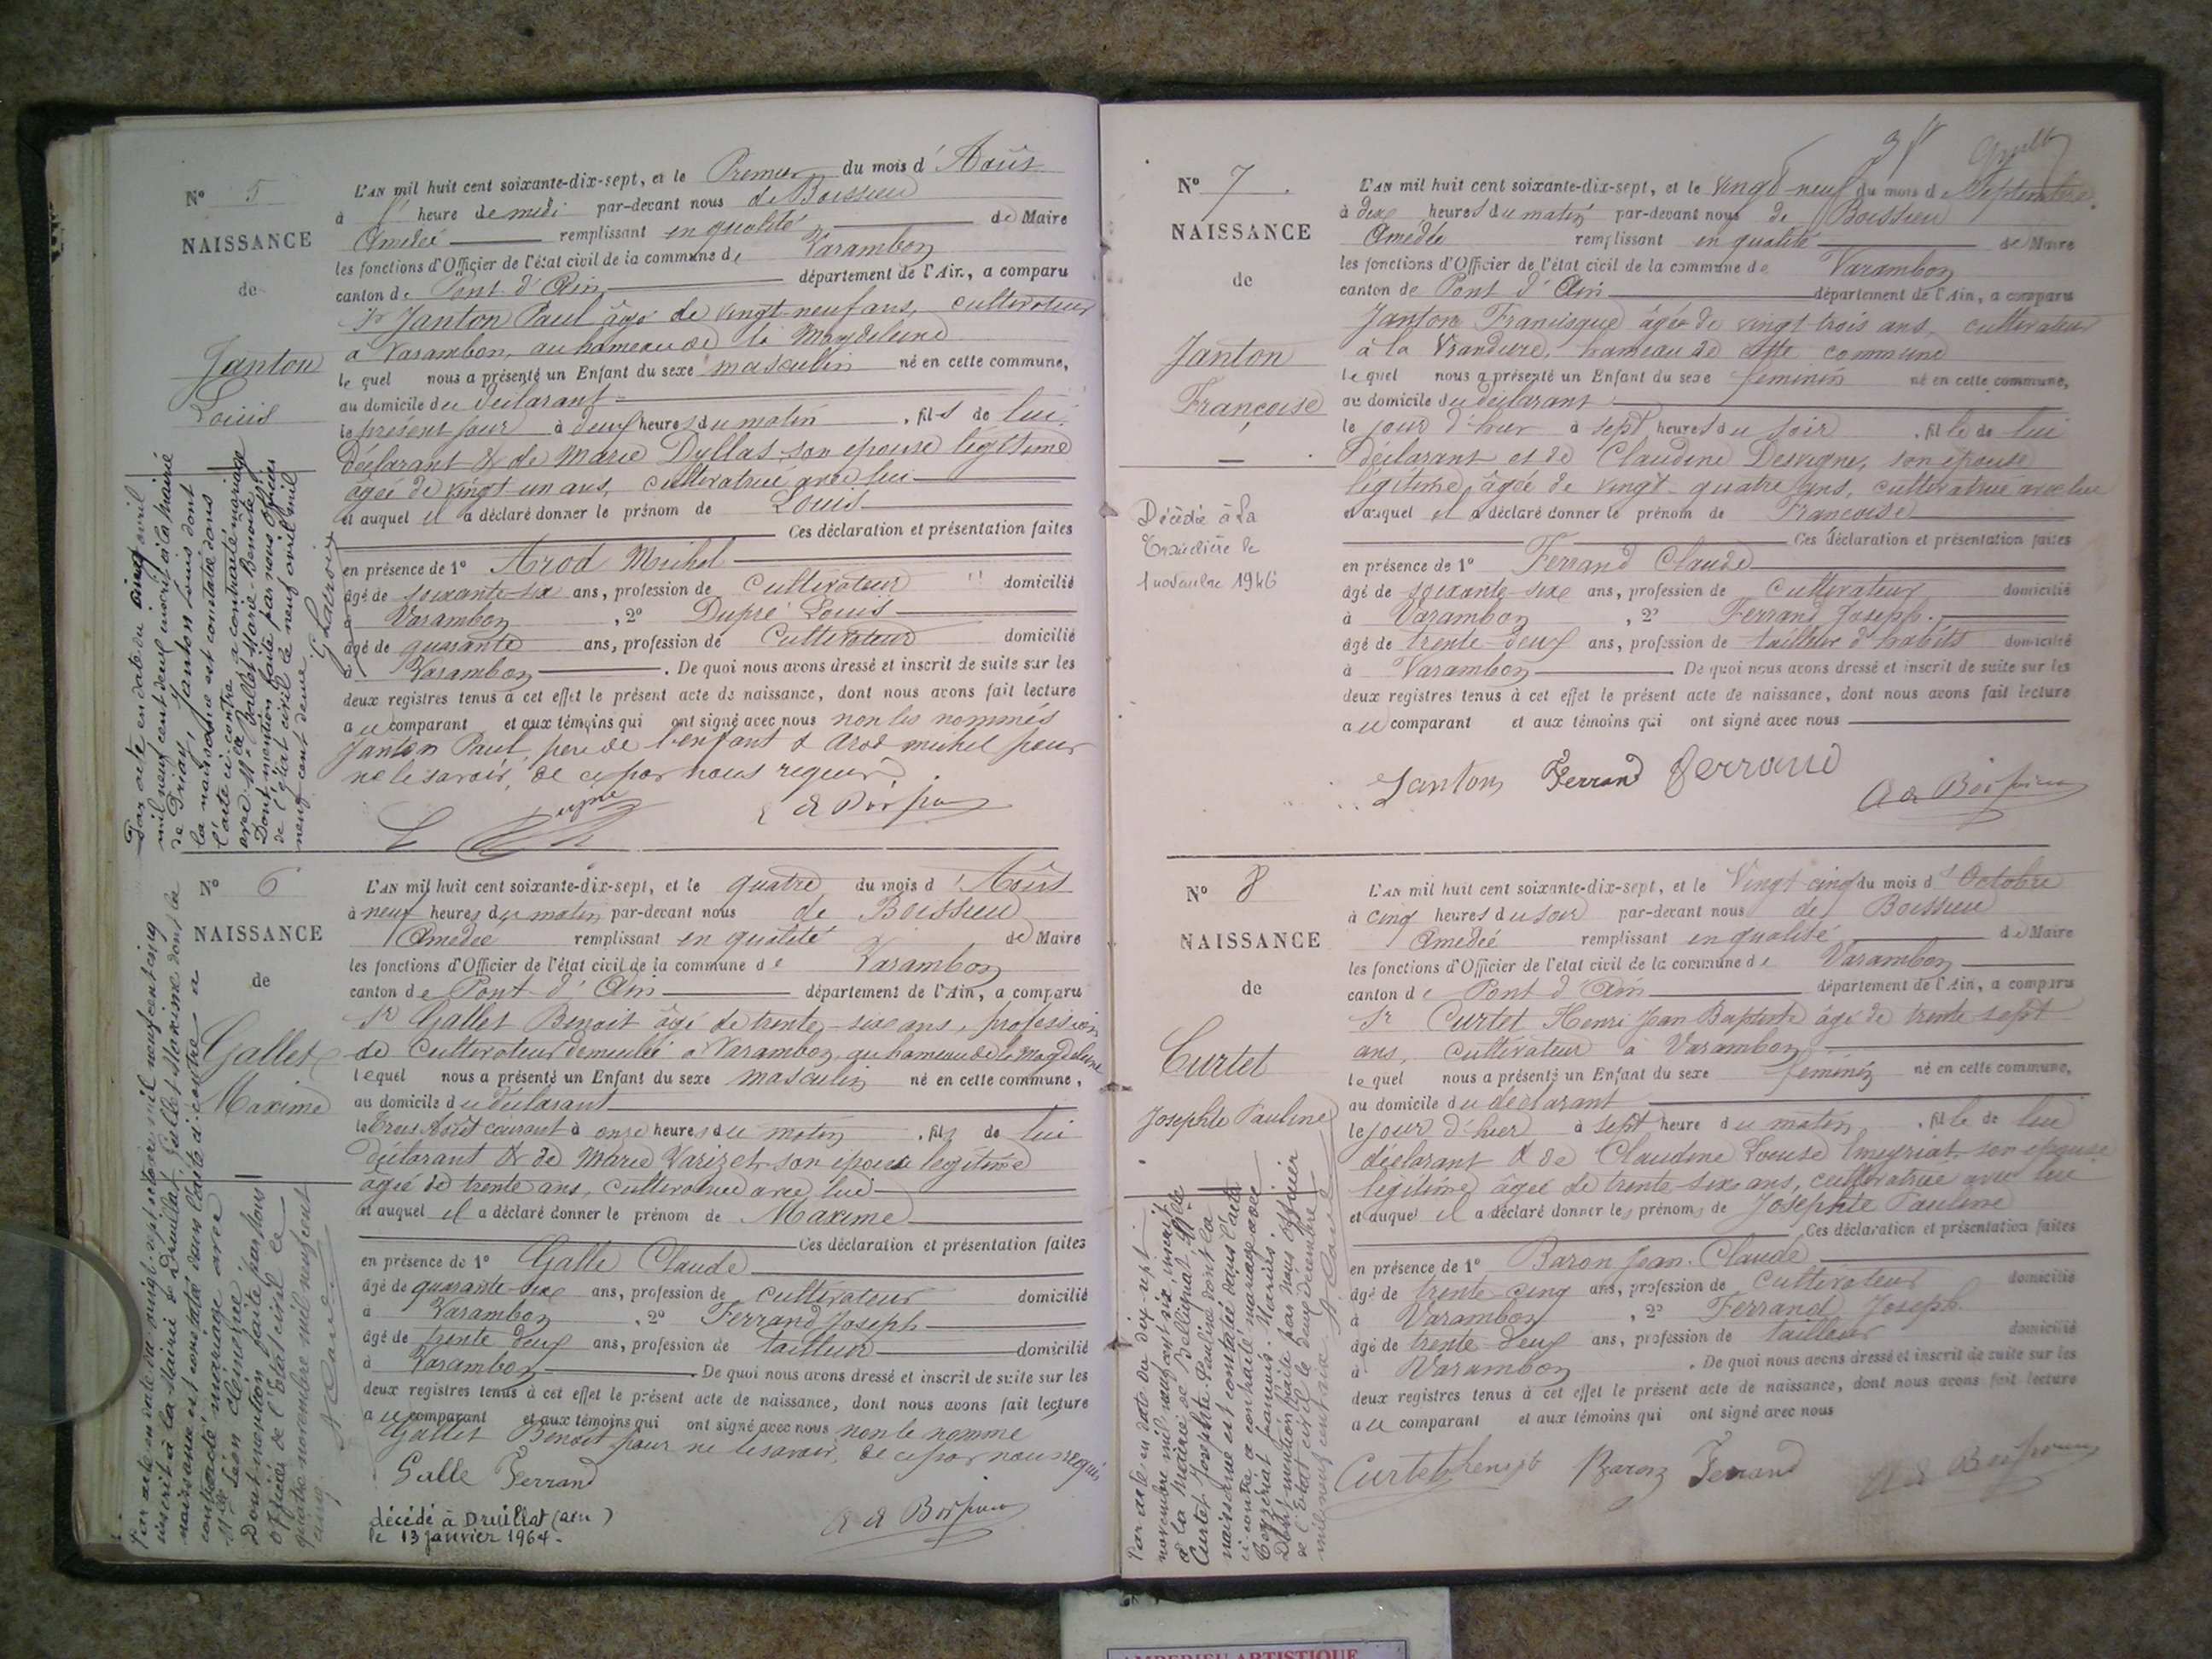 N° 5
NAISSANCE
de
Janton
Louis
L'AN mil huit cent soixante-dix-sept, et le Premier du mois d'Août
à heure de midi par-devant nous de Boissieu
Amedée remplissant en qualité de Maire
les fonctions d'Officier de l'état civil de la commune de Varambon
canton de Pont d'Ain département de l'Ain, a comparu
Sr Janton Paul âgé de vingt-neuf ans, cultivateur
à Varambon, au hameau de la Magdeleine
lequel nous a présenté un Enfant du sexe masculin né en cette commune,
au domicile du déclarant
le présent jour à deux heures du matin, fils de lui
déclarant & de Marie Dyllas son epouse légitime
âgée de vingt-un ans, cultivatrice avec lui
et auquel il a déclaré donner le prénom de Louis
Ces déclaration et présentation faites
en présence de 1° Arod Michel
âgé de soixante-six ans, profession de cultivateur domicilié
à Varambon, 2° Dupré Louis
âgé de quarante ans, profession de Cultivateur domicilié
à Varambon. De quoi nous avons dressé et inscrit de suite sur les
deux registres tenus à cet effet le présent acte de naissance, dont nous avons fait lecture
au comparant et aux témoins qui ont signé avec nous non les nommés
Janton Paul, père de l'enfant & Arod michel pour
ne le savoir, de ce par nous requis
Par acte en date du cinq avril
mil neuf cent deux inscrit à la mairie
de Priay, Janton Louis dont
la naissance est constatée dans
l'acte ci-contre, a contracté mariage
avec Mlle Gallet Marie-Benoite
Dont mention faite par nous Officier
de l'état civil le neuf avril mil
neuf cent deux
N° 6
NAISSANCE
de
Gallet
Maxime
L'AN mil huit cent soixante-dix-sept, et le quatre du mois d'Août
à neuf heures du matin par-devant nous de Boissieu
Amedée remplissant en qualité de Maire
les fonctions d'Officier de l'état civil de la commune de Varambon
canton de Pont d'Ain département de l'Ain, a comparu
Sr Gallet Benoit âgé de trente-six ans, profession
de Cultivateur à Varambon, au hameau de la Magdeleine
lequel nous a présenté un Enfant du sexe masculin né en cette commune,
au domicile du déclarant
le trois Août courant à onze heures du matin, fils de lui
déclarant & de Marie Varizet son épouse legitime
âgée de trente ans, cultivatrice avec lui
et auquel il a déclaré donner le prénom de Maxime
Ces déclaration et présentation faites
en présence de 1° Galle Claude
âgé de quarante-six ans, profession de cultivateur domicilié
à Varambon, 2° Ferrand Joseph
âgé de trente deux ans, profession de tailleur domicilié
à Varambon. De quoi nous avons dressé et inscrit de suite sur les
deux registres tenus à cet effet le présent acte de naissance, dont nous avons fait lecture
au comparant et aux témoins qui ont signé avec nous non le nommé
Gallet Benoit pour ne le savoir, de ce par nous requis
Galle Ferrand
décédé à Druillat (Ain)
le 13 janvier 1964.
Par acte en date du vingt-sept octobre mil neuf cent cinq
inscrit à la Mairie de Druillat, Gallet Maxime dont la
naissance est constatée dans l'acte ci-contre a
contracté mariage avec
Dont mention faite par Nous
Officier de l'état civil ce
quatre novembre mil neuf cent
cinq
N° 7
NAISSANCE
de
Janton
Françoise
Décédée à La
le
1 novembre 1946
L'AN mil huit cent soixante-dix-sept, et le vingt-neuf du mois de Septembre
à dix heures du matin par-devant nous de Boissieu
Amedée remplissant en qualité de Maire
les fonctions d'Officier de l'état civil de la commune de Varambon
canton de Pont d'Ain département de l'Ain, a comparu
Janton Francisque âgé de vingt trois ans, cultivateur
à la hameau de cette commune
lequel nous a présenté un Enfant du sexe feminin né en cette commune,
au domicile du déclarant
le jour d'hier à sept heures du soir, fille de lui
déclarant et de Claudine Desvigne, son épouse
légitime, âgée de vingt-quatre ans, cultivatrice avec lui
et auquel il a déclaré donner le prénom de Francoise
Ces déclaration et présentation faites
en présence de 1° Ferrand Claude
âgé de soixante-six ans, profession de Cultivateur domicilié
à Varambon, 2° Ferrand Joseph
âgé de trente-deux ans, profession de tailleur d'habits domicilié
à Varambon. De quoi nous avons dressé et inscrit de suite sur les
deux registres tenus à cet effet le présent acte de naissance, dont nous avons fait lecture
au comparant et aux témoins qui ont signé avec nous
Janton Ferrand Ferrand
N° 8
NAISSANCE
de
Curtet
Josephte Pauline
L'AN mil huit cent soixante-dix-sept, et le Vingt cinq du mois d'Octobre
à cinq heures du soir par-devant nous de Boissieu
Amedée remplissant en qualité de Maire
les fonctions d'Officier de l'état civil de la commune de Varambon
canton de Pont d'Ain département de l'Ain, a comparu
Sr Curtet Henri Jean Baptiste âgé de trente sept
ans, cultivateur à Varambon
lequel nous a présenté un Enfant du sexe feminin né en cette commune,
au domicile du déclarant
le jour d'hier à sept heure du matin, fille de lui
déclarant & de Claudine Louise Emeyriat son epouse
légitime âgée de trente-six ans, cultivatrice avec lui
et auquel il a déclaré donner les prénoms de Josephte Pauline
Ces déclaration et présentation faites
en présence de 1° Baron Jean-Claude
âgé de trente-cinq ans, profession de cultivateur domicilié
à Varambon, 2° Ferrand Joseph
âgé de trente-deux ans, profession de tailleur domicilié
à Varambon. De quoi nous avons dressé et inscrit de suite sur les
deux registres tenus à cet effet le présent acte de naissance, dont nous avons fait lecture
au comparant et aux témoins qui ont signé avec nous
Baron Ferrand
Par acte en date du dix-sept
novembre mil neuf cent six, inscrit
à la Mairie de Bellignat, Mlle
Curtet Josephte-Pauline dont la
naissance est constatée dans l'acte
ci-contre a contracté mariage avec
Dont mention faite par Nous Officier
de l'Etat civil le deux décembre
mil neuf cent six
AMBERIEU ARTISTIQUE